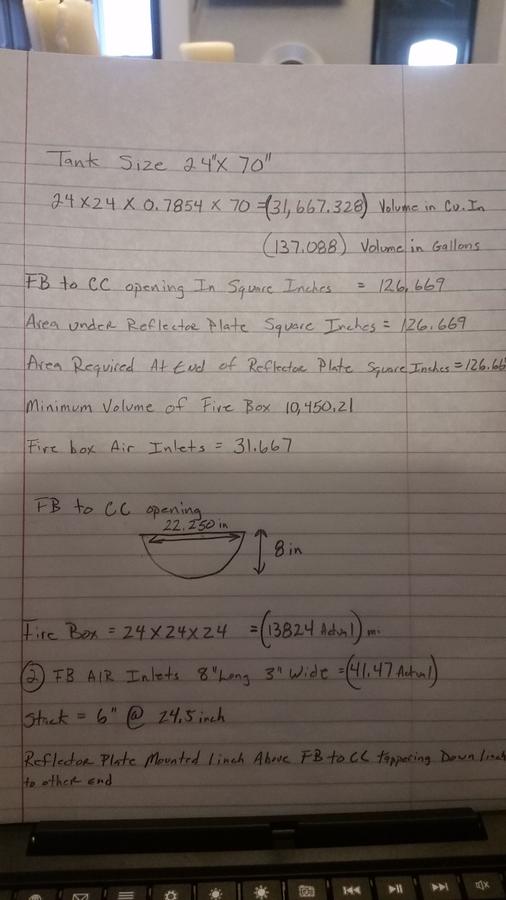 Tank Size 24"X 70"
24 X24 X 0.7854 X 70 =(31,667.328) Volume in Cu.In
(137.088) Volume in Gallons
FB to CC opening In Square Inches = 126.669
Area under Reflector Plate Square Inches = 126.669
Area Required At End of Reflector Plate Square Inches = 126.66
Minimum Volume of Fire Box 10,450.21
Fire box Air Inlets = 31.667
FB to CC opening
22.250 in
8 in
Fire Box = 24 X 24 X 24 = (13824 Actual)
② FB AIR Inlets 8" Long 3" Wide = (41.47 Actual)
Stack = 6" @ 24.5 inch
Reflector Plate Mounted 1 inch Above FB to CC tappering Down 1 inch
to other end